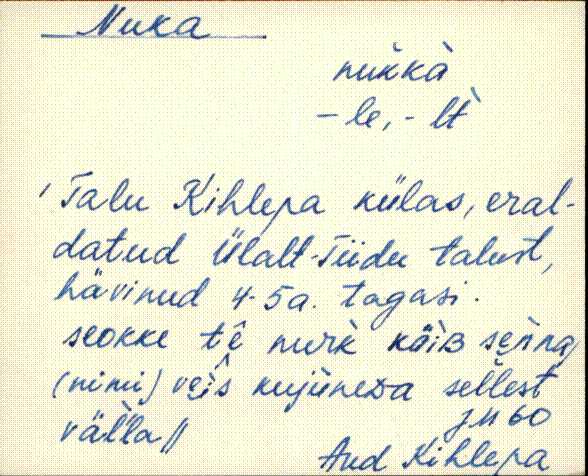 Nuka
nukkà
– le, - lt̀
Talu Kihlepa külas, eral-
datud Ülalt-Tiidu talust,
hävinud 4-5a. tagasi.
seokke tê nurk̀ käìB sen̄na,
(nimi) veìs kujuneDa sellest
väl̀la //
JM 60
Aud Kihlepa